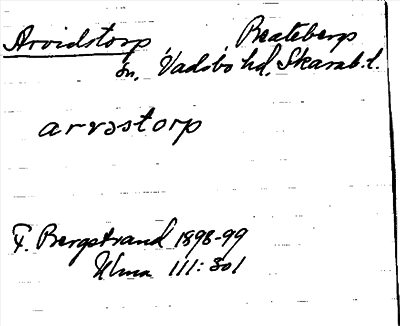 Arvidstorp Beateberg
sn, Vadsbo hd, Skarab. l.
arvəstorp
F. Bergstrand 1898-99
Ulma 111:301